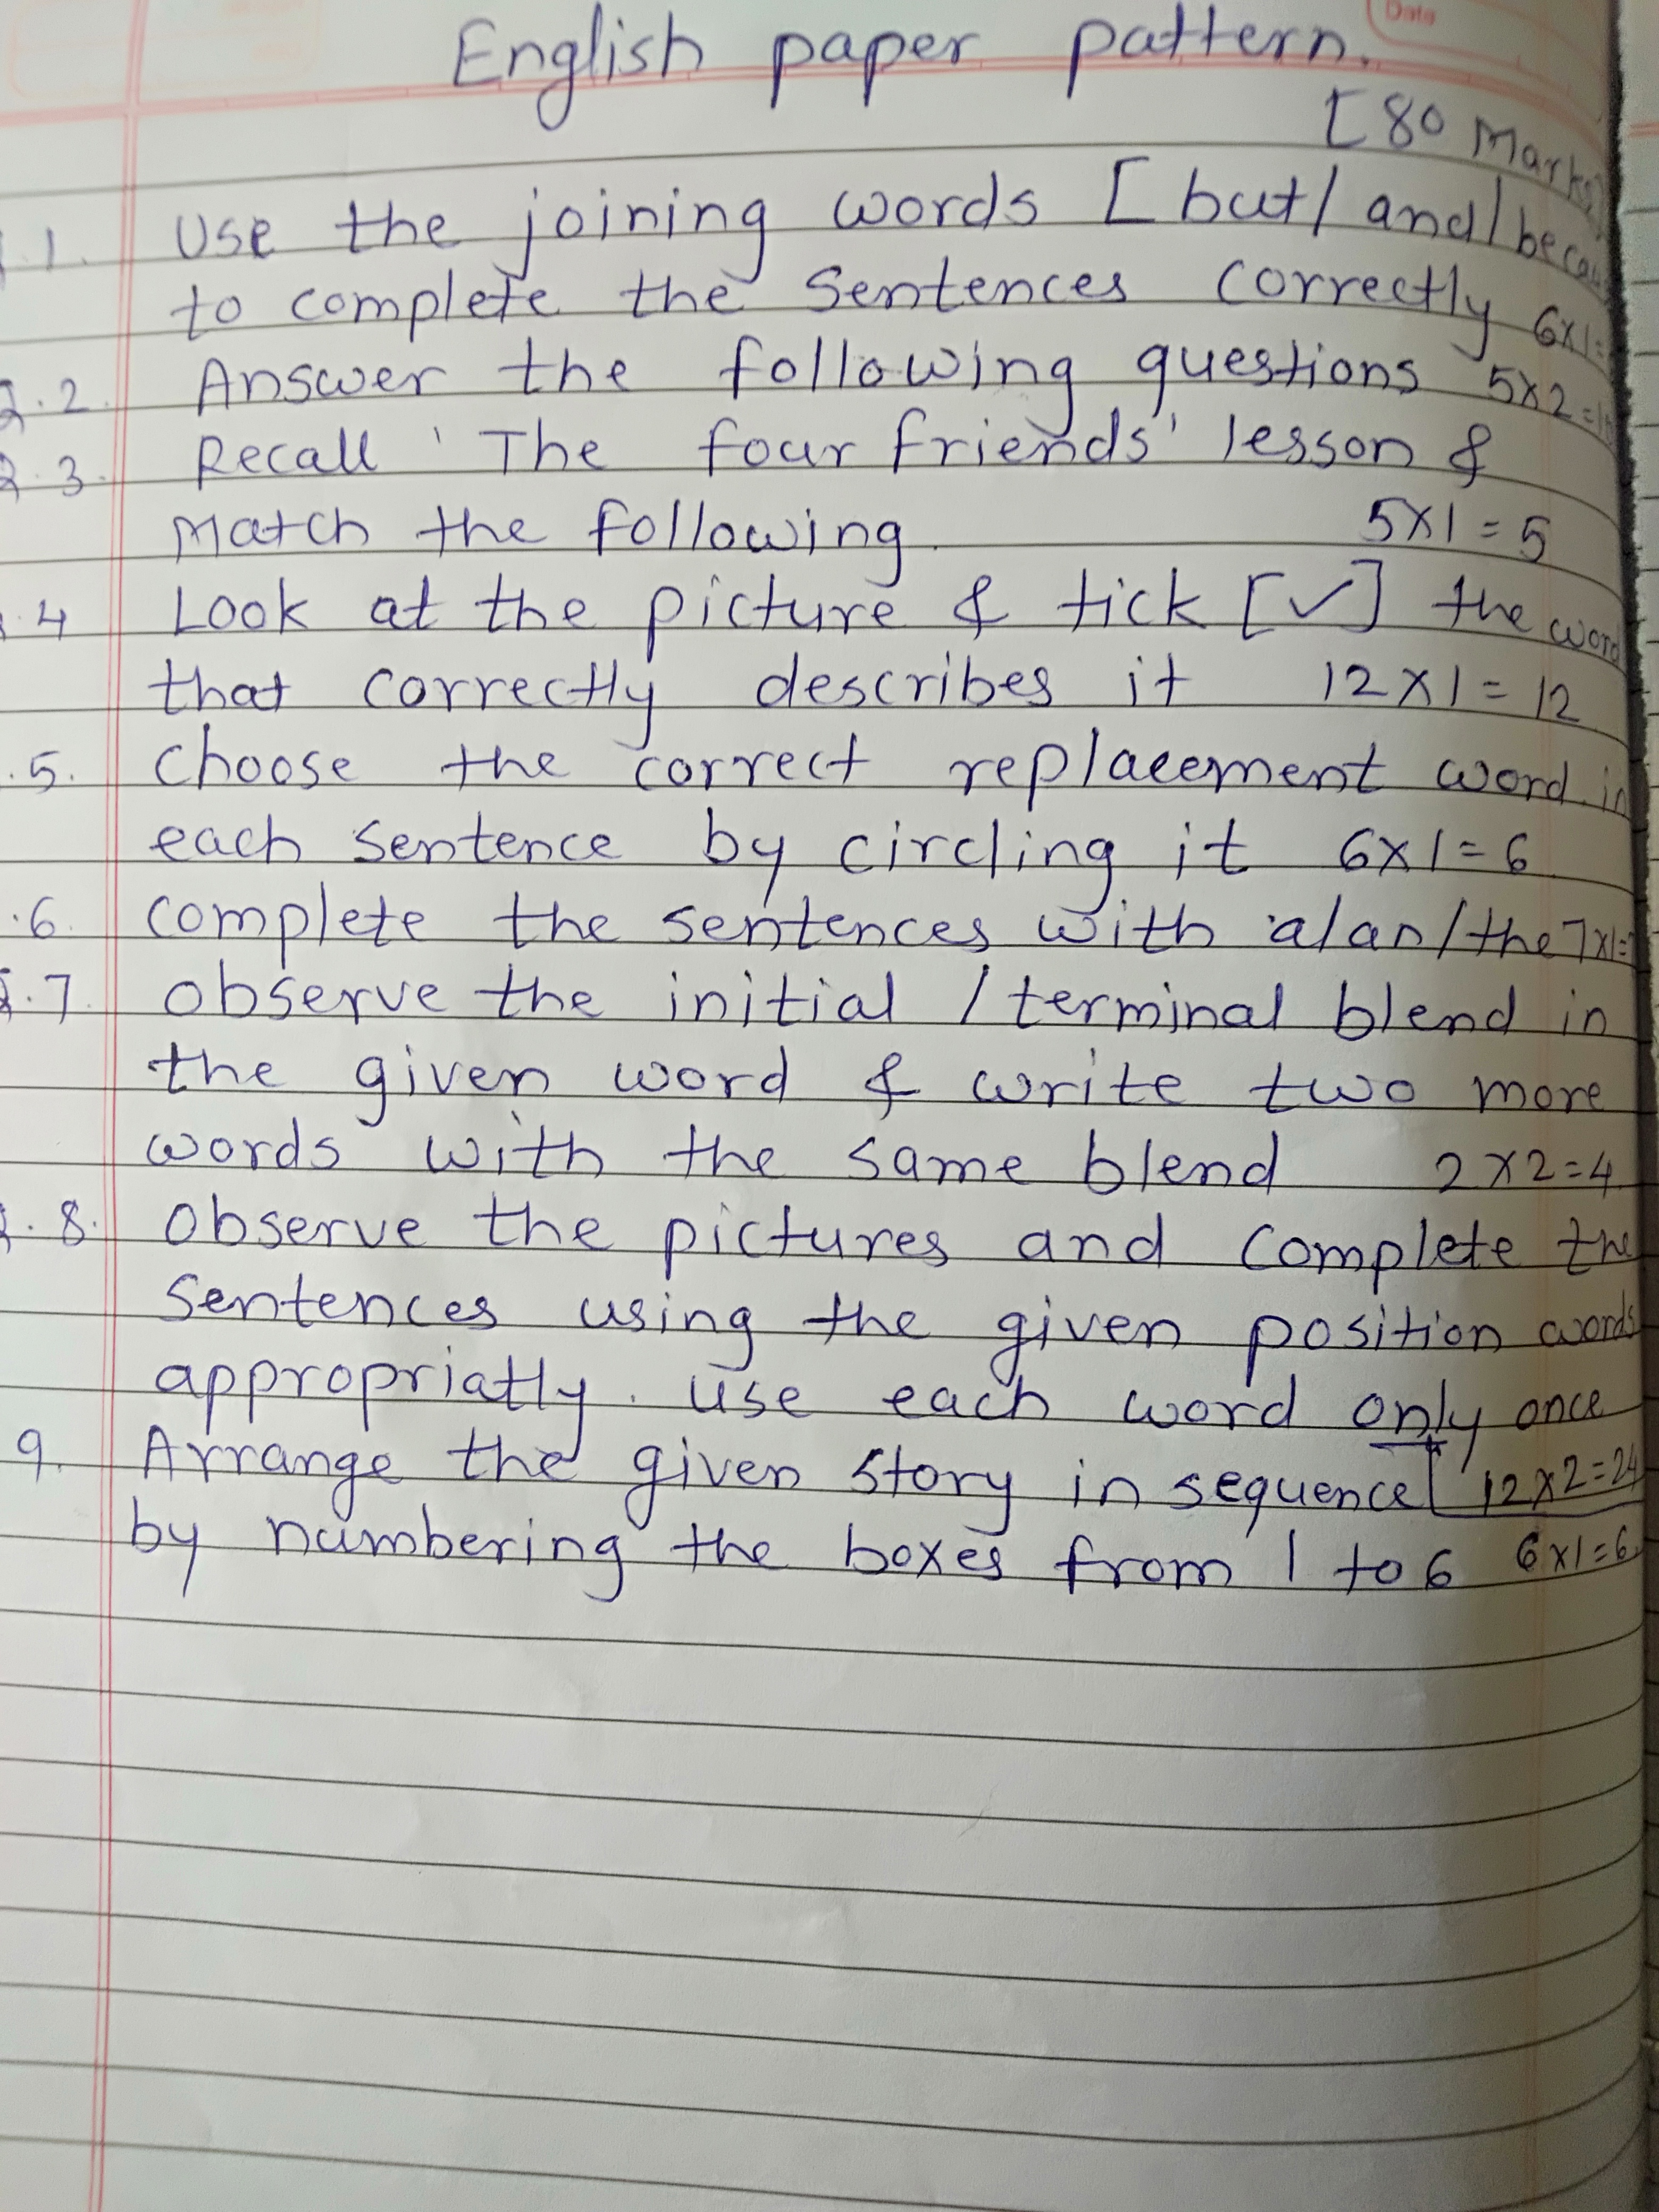 Date
English paper pattern.
[80 Marks]
1. Use the joining words [but/and/becau
to complete the sentences correctly 6x1=
Q.2. Answer the following questions 5x2=10
Q.3. Recall 'The four friends' lesson &
Match the following. 5x1=5
4 Look at the picture & tick [✓] the word
that correctly describes it 12x1=12
.5. choose the correct replacement word in
each sentence by circling it 6x1=6
.6. complete the sentences with a/an/the 7x1=7
Q.7. Observe the initial / terminal blend in
the given word & write two more
words with the same blend 2x2=4
Q.8. Observe the pictures and complete the
sentences using the given position words
appropriatly. use each word only once
12x2=24
9. Arrange the given story in sequence
by numbering the boxes from 1 to 6 6x1=6